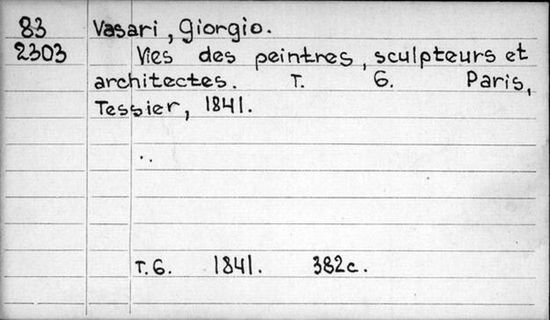 83 Vasari, Giorgio.
2303 Vies des peintres, sculpteurs et
architectes. T. 6. Paris,
Tessier, 1841.
T.6. 1841. 382c.